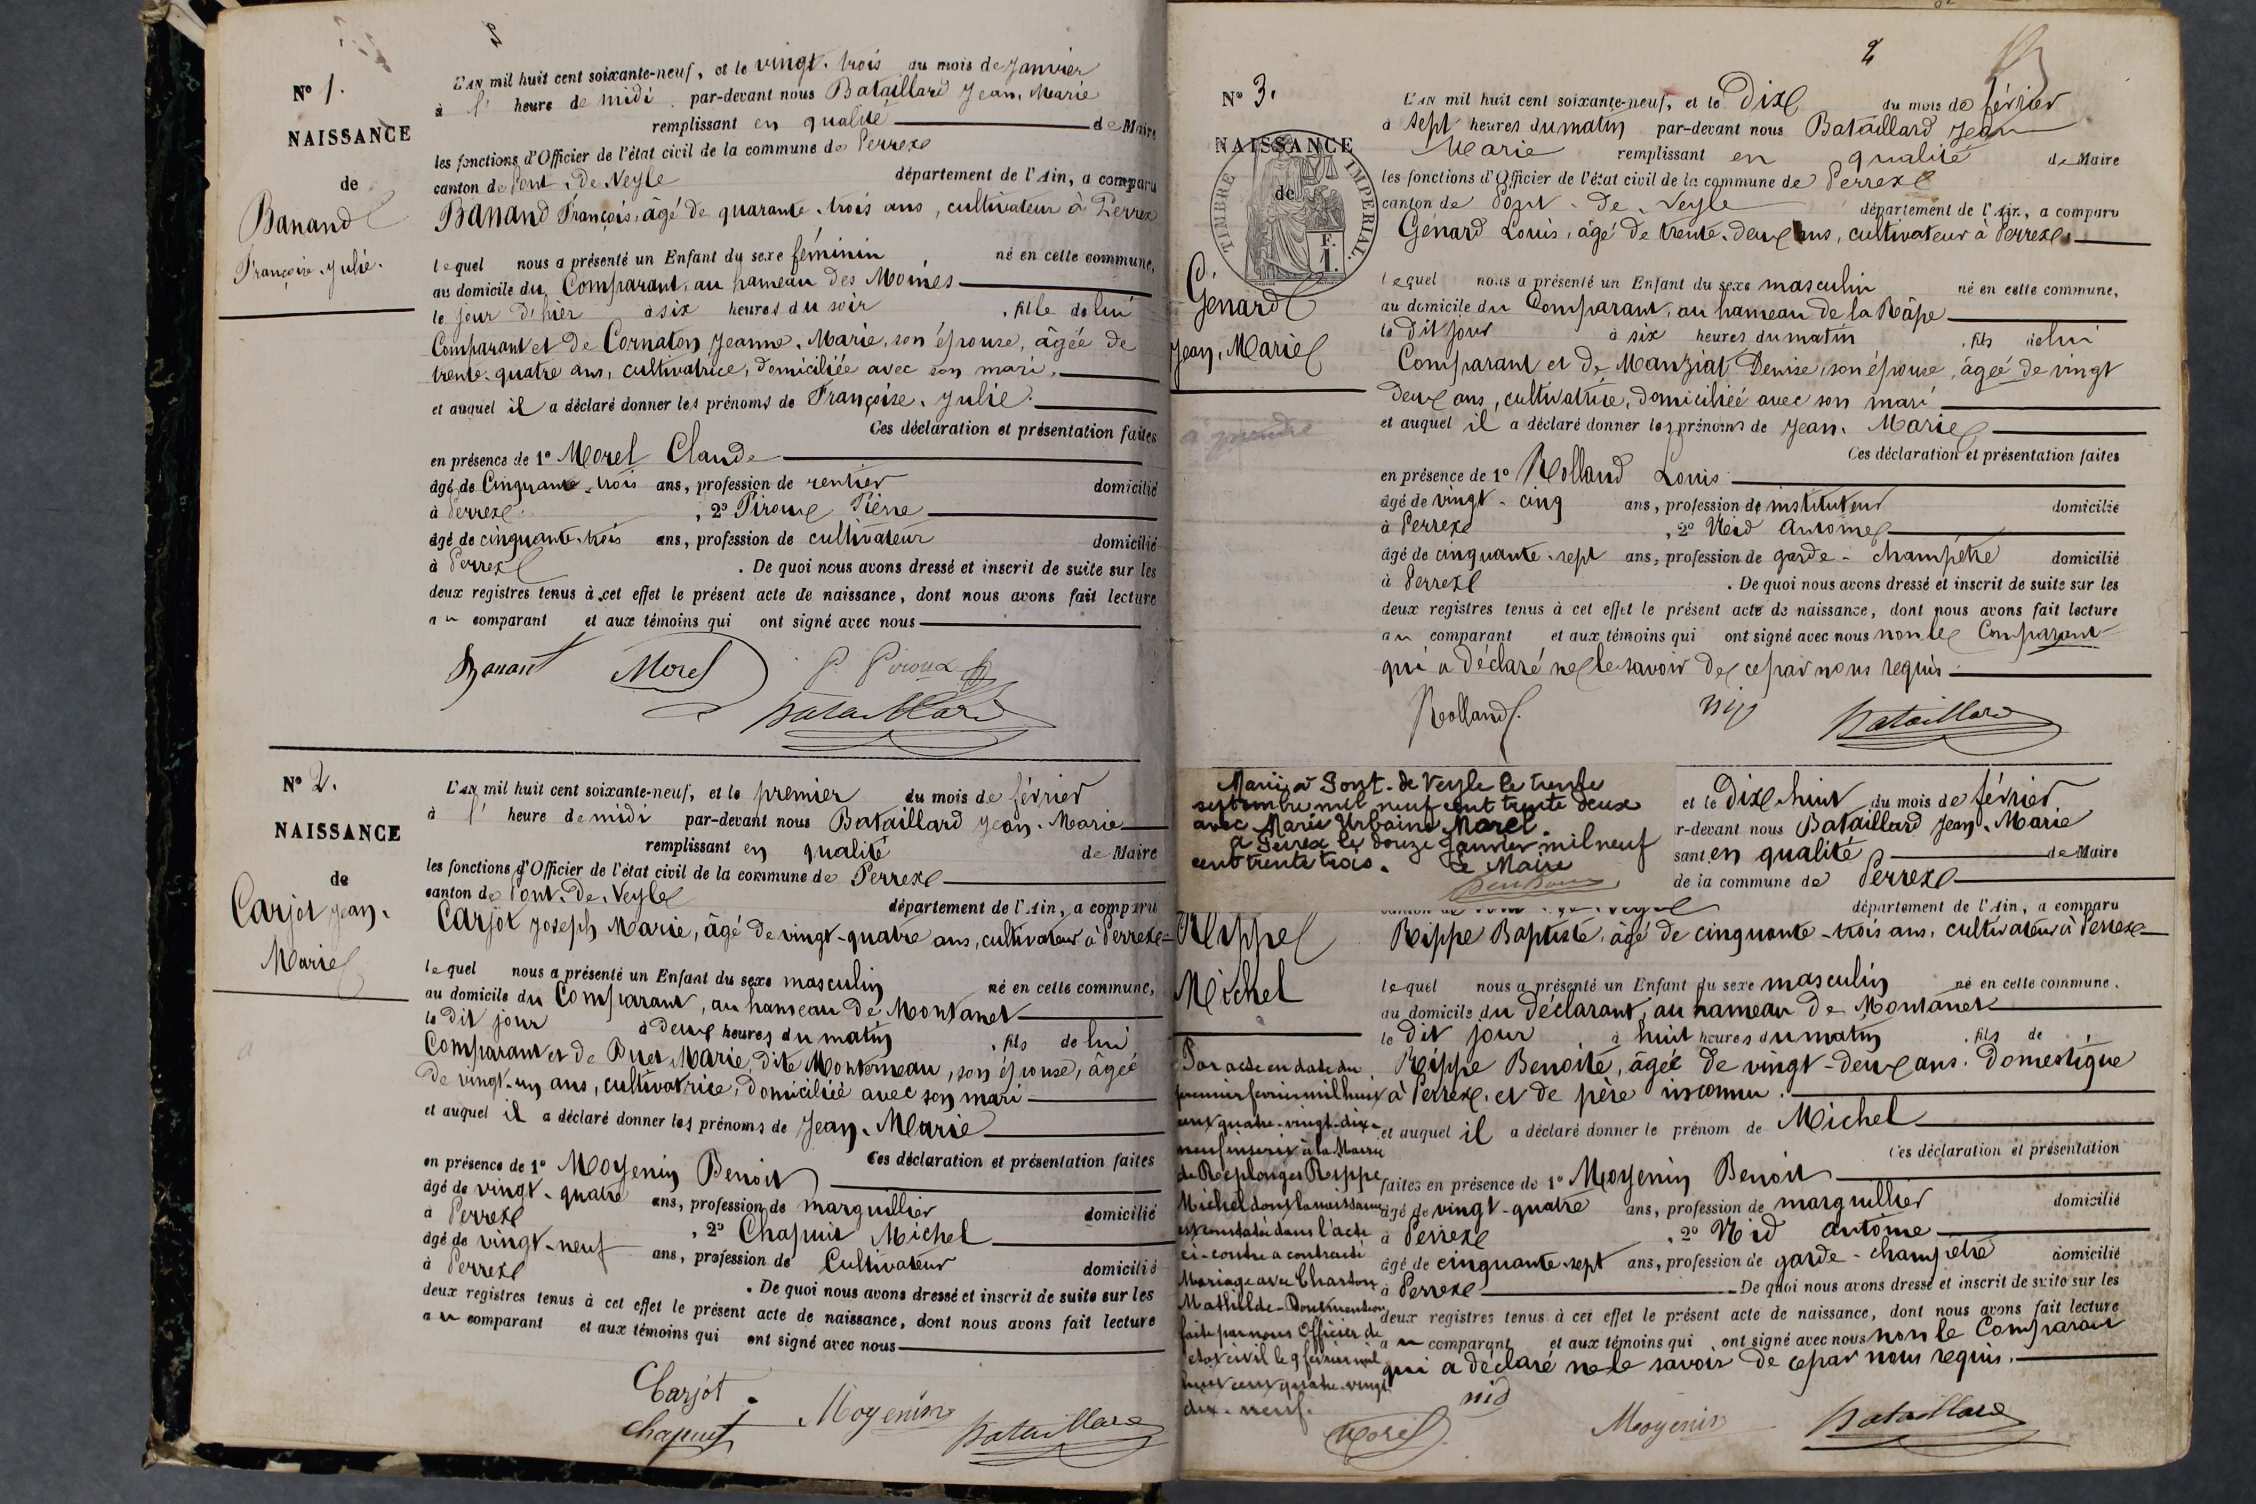 2
N° 1.
NAISSANCE
de
Banand
Françoise-Julie.
L'AN mil huit cent soixante-neuf, et le vingt-trois du mois de Janvier
à l' heure de midi par-devant nous Bataillard Jean-Marie
remplissant en qualité de Maire
les fonctions d'Officier de l'état civil de la commune de Perrex
canton de Pont-de-Veyle département de l'Ain, a comparu
Banand François, âgé de quarante-trois ans, cultivateur à Perrex
lequel nous a présenté un Enfant du sexe féminin né en cette commune,
au domicile du Comparant, au hameau des Moines
le jour d'hier à six heures du soir , fille de lui
Comparant et de Cornaton Jeanne-Marie, son épouse, âgée de
trente-quatre ans, cultivatrice, domiciliée avec son mari,
et auquel il a déclaré donner les prénoms de Françoise-Julie.
Ces déclaration et présentation faites
en présence de 1° Morel Claude
âgé de Cinquante-trois ans, profession de rentier domicilié
à Perrex , 2° Piroux Pierre
âgé de cinquante-trois ans, profession de cultivateur domicilié
à Perrex . De quoi nous avons dressé et inscrit de suite sur les
deux registres tenus à cet effet le présent acte de naissance, dont nous avons fait lecture
au comparant et aux témoins qui ont signé avec nous
Banant Morel P. Piroux
Bataillard
N° 2.
NAISSANCE
de
Carjot Jean-
Marie
L'AN mil huit cent soixante-neuf, et le premier du mois de février
à l' heure de midi par-devant nous Bataillard Jean-Marie
remplissant en qualité de Maire
les fonctions d'Officier de l'état civil de la commune de Perrex
canton de Pont-de-Veyle département de l'Ain, a comparu
Carjot Joseph Marie, âgé de vingt-quatre ans, cultivateur à Perrex
lequel nous a présenté un Enfant du sexe masculin né en cette commune,
au domicile du Comparant, au hameau de Montanet
le dit jour à deux heures du matin , fils de lui
Comparant et de Buet Marie, dite Monterneau, son épouse, âgée
de vingt-un ans, cultivatrice, domiciliée avec son mari
et auquel il a déclaré donner les prénoms de Jean-Marie
Ces déclaration et présentation faites
en présence de 1° Moyenin Benoit
âgé de vingt-quatre ans, profession de marguillier domicilié
à Perrex , 2° Chapuis Michel
âgé de vingt-neuf ans, profession de Cultivateur domicilié
à Perrex . De quoi nous avons dressé et inscrit de suite sur les
deux registres tenus à cet effet le présent acte de naissance, dont nous avons fait lecture
au comparant et aux témoins qui ont signé avec nous
Carjot
Chapuis Moyenin Bataillard
2
N° 3.
NAISSANCE
de
TIMBRE IMPERIAL.
F.
1.
Génard
Jean-Marie
à prendre
L'AN mil huit cent soixante-neuf, et le Dix du mois de février
à sept heures du matin par-devant nous Bataillard Jean
Marie remplissant en qualité de Maire
les fonctions d'Officier de l'état civil de la commune de Perrex
canton de Pont-de-Veyle département de l'Ain, a comparu
Génard Louis, âgé de trente-deux ans, cultivateur à Perrex,
lequel nous a présenté un Enfant du sexe masculin né en cette commune,
au domicile du Comparant, au hameau de la Râpe
le dit jour à six heures du matin , fils de lui
Comparant et de Manziat Denise, son épouse, âgée de vingt
deux ans, cultivatrice, domiciliée avec son mari
et auquel il a déclaré donner les prénoms de Jean-Marie
Ces déclaration et présentation faites
en présence de 1° Rolland Louis
âgé de vingt-cinq ans, profession de instituteur domicilié
à Perrex , 2° Nid Antoine
âgé de cinquante-sept ans, profession de garde-champêtre domicilié
à Perrex . De quoi nous avons dressé et inscrit de suite sur les
deux registres tenus à cet effet le présent acte de naissance, dont nous avons fait lecture
au comparant et aux témoins qui ont signé avec nous non le Comparant
qui a déclaré ne le savoir de ce par nous requis.
Rolland. nid Bataillard
Marié à Pont-de-Veyle le trente
septembre mil neuf cent trente deux
avec Marie Urbaine Morel.
à Perrex le douze Janvier mil neuf
cent trente trois. Le Maire
et le Dix-huit du mois de février
r-devant nous Bataillard Jean-Marie
sant en qualité de Maire
de la commune de Perrex
département de l'Ain, a comparu
Rippe
Michel
Rippe Baptiste, âgé de cinquante-trois ans, cultivateur à Perrex
lequel nous a présenté un Enfant du sexe masculin né en cette commune,
au domicile du déclarant, au hameau de Montanet
le dit jour à huit heures du matin , fils de
Rippe Benoite, âgée de vingt-deux ans, Domestique
à Perrex, et de père inconnu.
et auquel il a déclaré donner le prénom de Michel
Ces déclaration et présentation
faites en présence de 1° Moyenin Benoit
âgé de vingt-quatre ans, profession de marguillier domicilié
à Perrex , 2° Nid Antoine
âgé de cinquante-sept ans, profession de garde-champêtre domicilié
à Perrex De quoi nous avons dressé et inscrit de suite sur les
deux registres tenus à cet effet le présent acte de naissance, dont nous avons fait lecture
au comparant et aux témoins qui ont signé avec nous non le Comparant
qui a déclaré ne le savoir de ce par nous requis.
nid Moyenin Bataillard
Par acte en date du
premier février mil huit
cent quatre-vingt-dix-
neuf inscrit à la Mairie
de Replonges Rippe
Michel dont la naissance
est constatée dans l'acte
ci-contre a contracté
Mariage avec Charton
Mathilde-Dont mention
faite par nous Officier de
l'état civil le 9 février mil
huit cent quatre-vingt
dix-neuf.
Morel